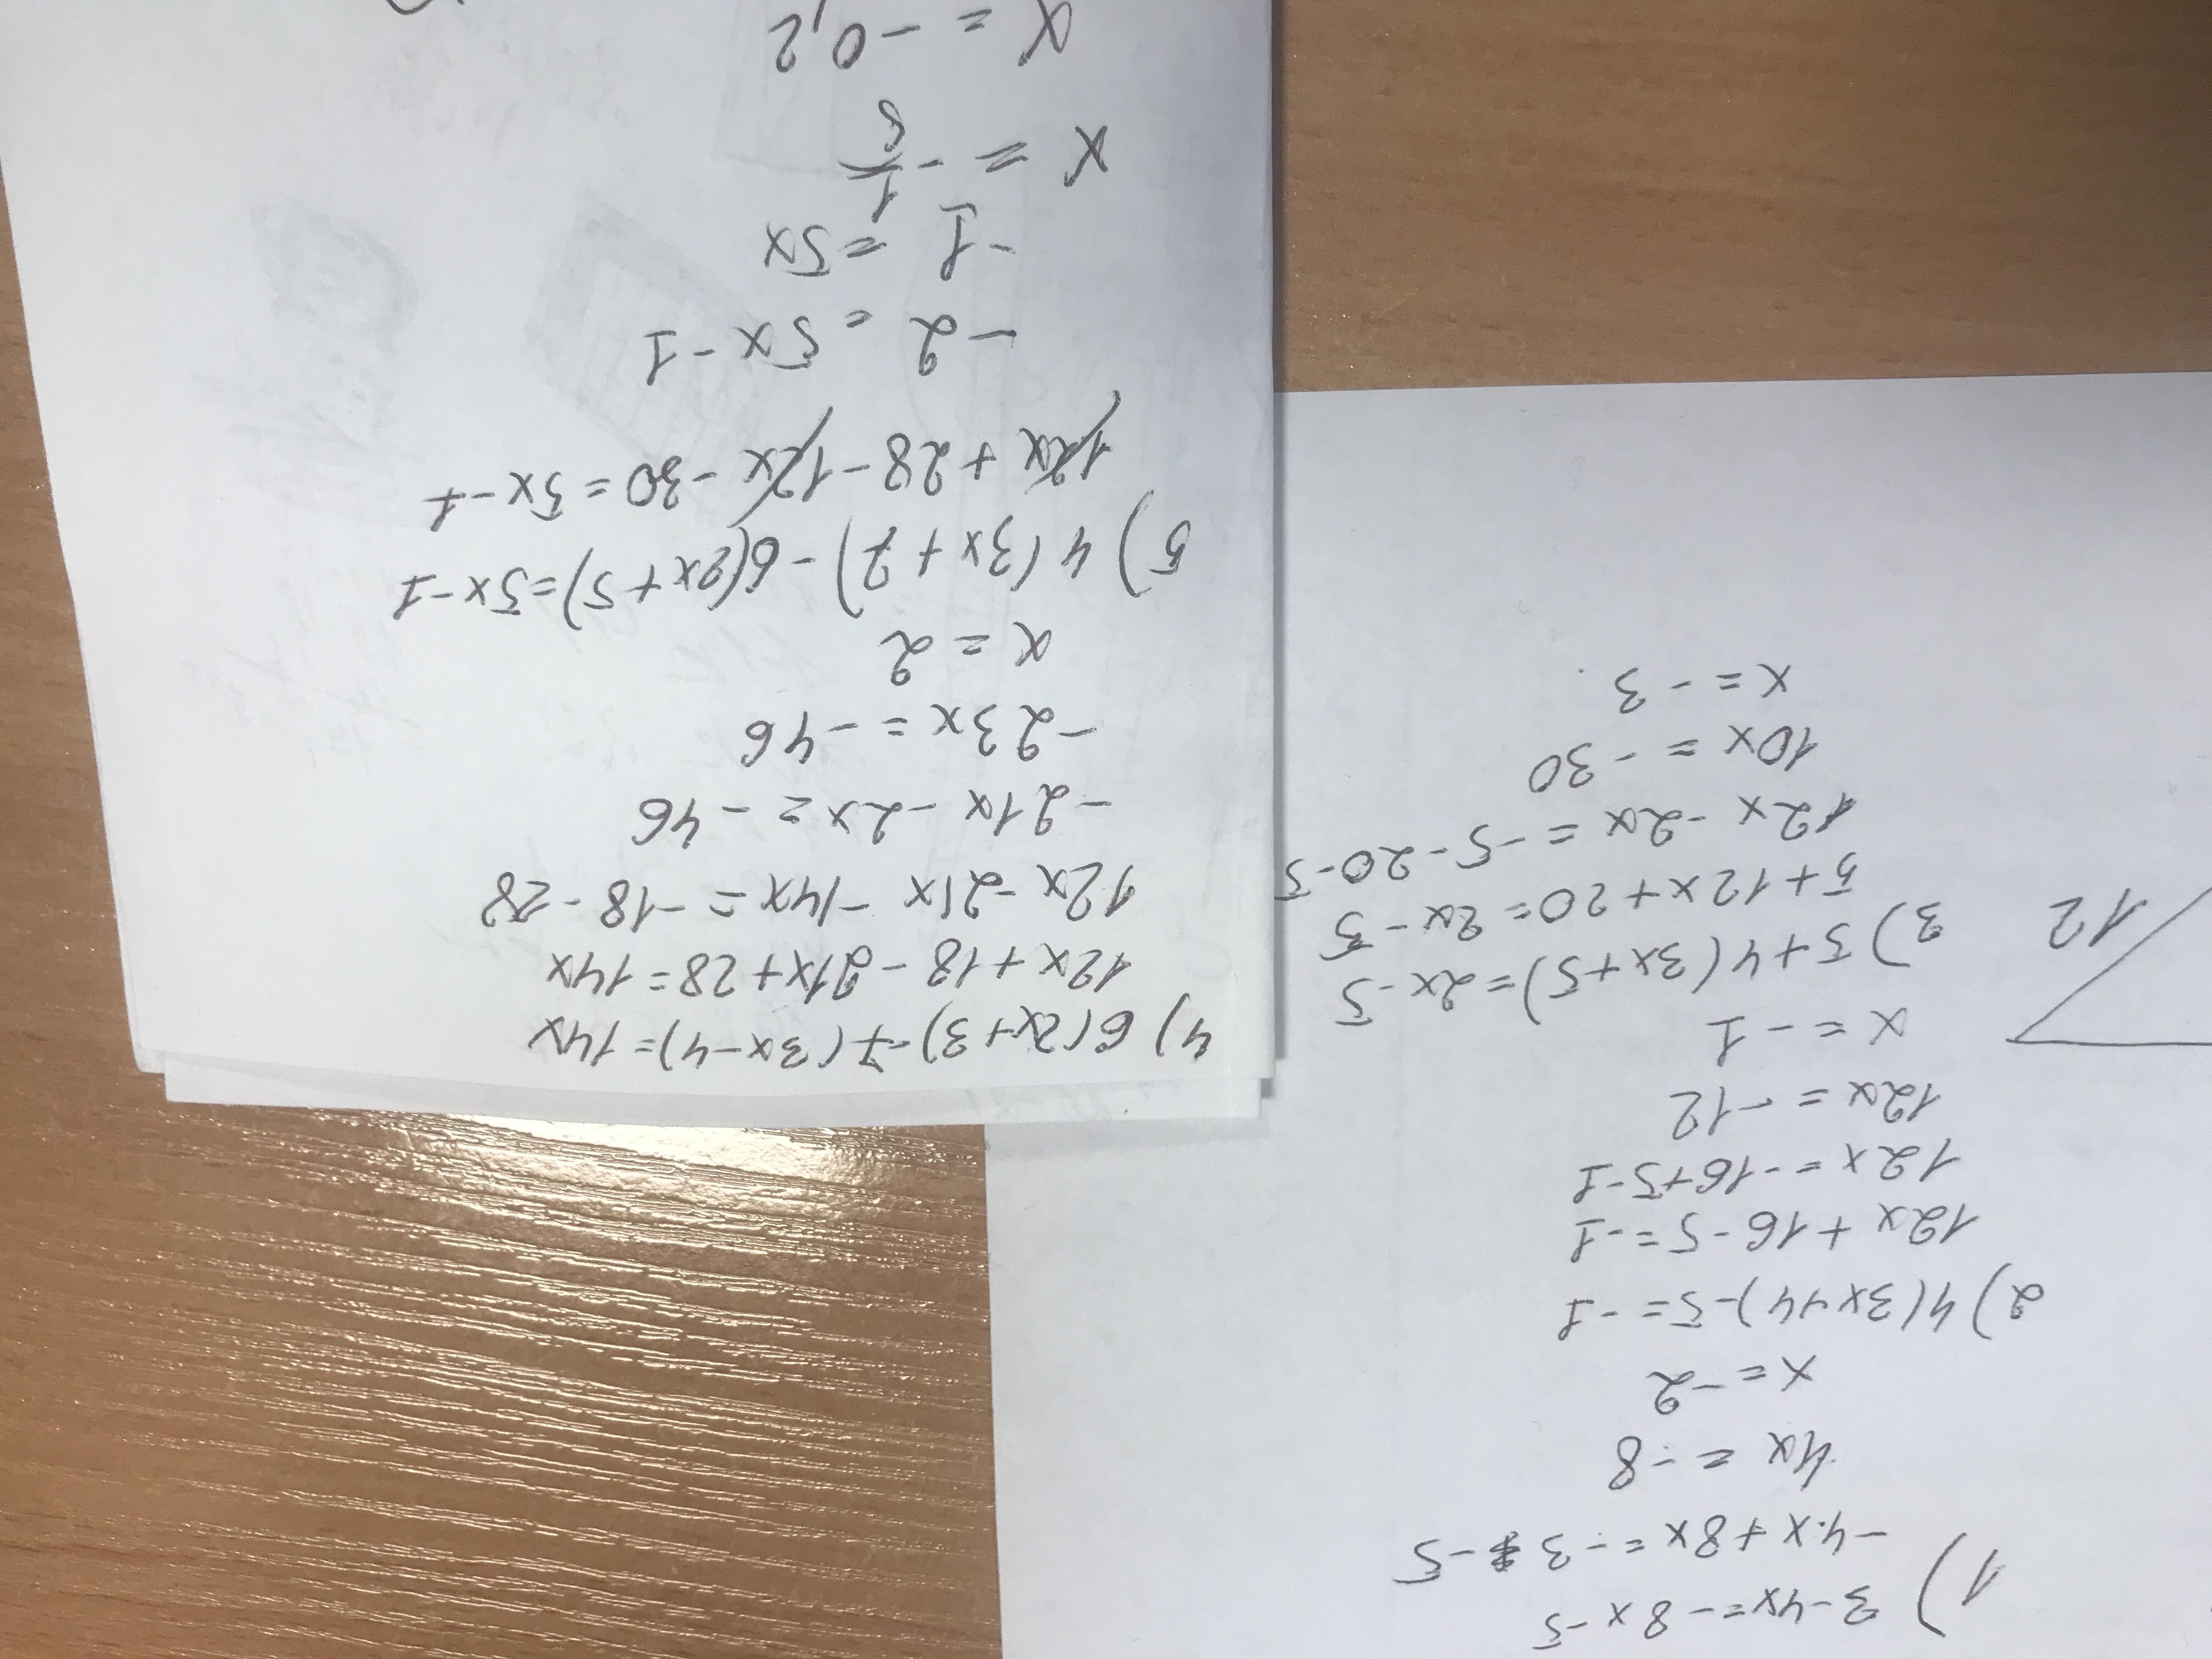 1) 3-4x=-8x-5
-4x+8x=-3-5
4x = -8
x=-2
2) 4(3x+4)-5=-1
12x+16-5=-1
12x=-16+5-1
12x=-12
x=-1
3) 5+4(3x+5)=2x-5
5+12x+20=2x-5
12x-2x=-5-20-5
10x=-30
x=-3
12
4) 6(2x+3)-7(3x-4)=14x
12x+18-21x+28=14x
12x-21x-14x=-18-28
-21x-2x=-46
-23x=-46
x=2
5) 4(3x+7)-6(2x+5)=5x-1
12x+28-12x-30=5x-1
-2=5x-1
-1=5x
x=-1/5
x=-0,2